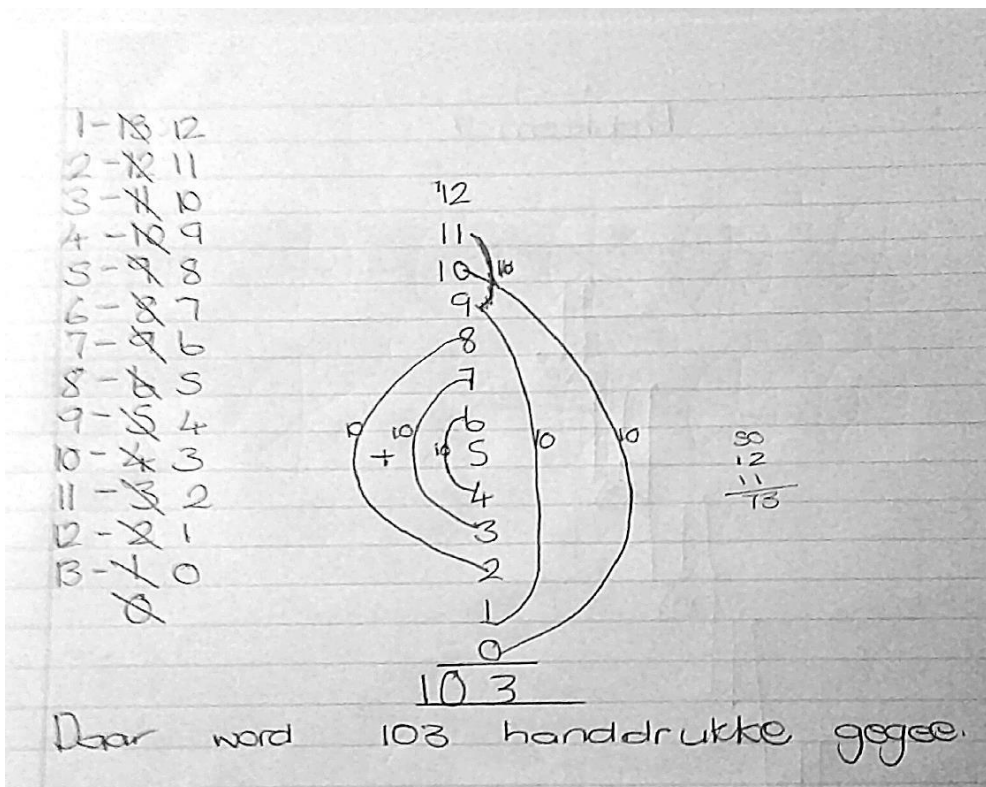 1 - 13 12
2 - 12 11
3 - 11 10
4 - 10 9
5 - 9 8
6 - 8 7
7 - 7 6
8 - 6 5
9 - 5 4
10 - 4 3
11 - 3 2
12 - 2 1
13 - 1 0
0
12
11
10 10
9
8
7
10 10 10 6 10 10
+ 5
4
3
2
1
0
103
50
12
11
73
Daar word 103 handdrukke gegee.